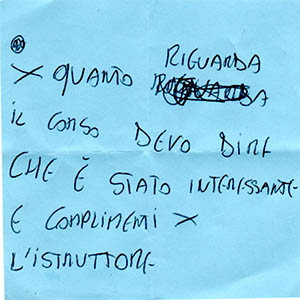 X QUANTO RIGUARDA
IL CORSO DEVO DIRE
CHE È STATO INTERESSANTE
E COMPLIMENTI X
L'ISTRUTTORE